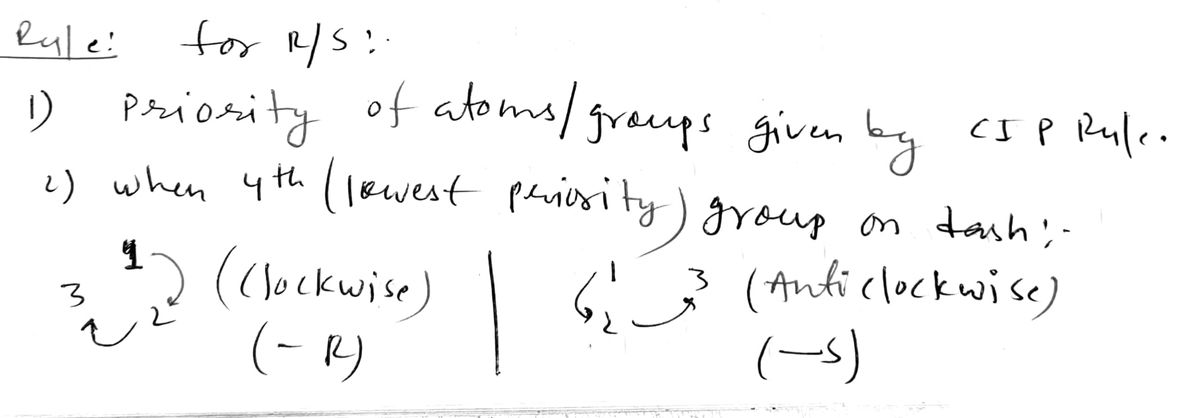 Rule: for R/S :-
1) Priority of atoms/groups given by CIP Rule.
2) when 4th (lowest periority) group on dash :-
1 2 3 (Clockwise) | 1 2 3 (Anti clockwise)
(- R) (-S)